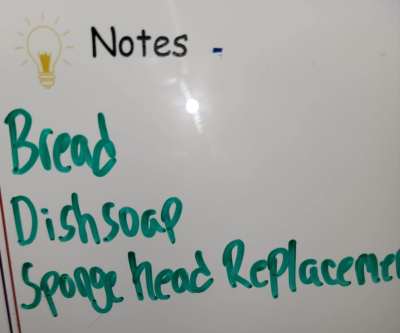 Notes -
Bread
Dishsoap
Sponge head Replacemen